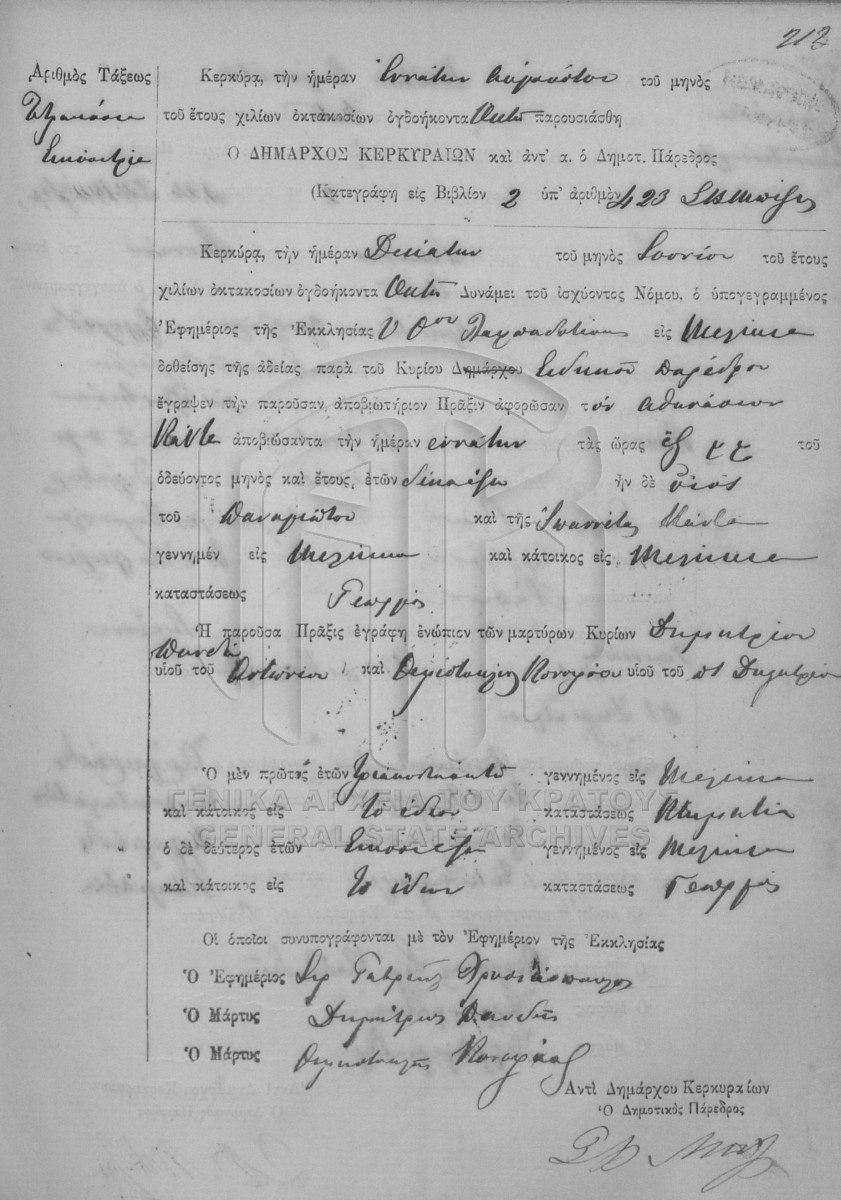 212
Ἀριθμὸς Τάξεως
Τετρακόσια
Εικοσιτρία
Κερκύρα, τὴν ἡμέραν Ἐννάτην Αὐγούστου τοῦ μηνὸς
τοῦ ἔτους χιλίων ὀκτακοσίων ὀγδοήκοντα Ὀκτὼ παρουσιάσθη
Ὁ ΔΗΜΑΡΧΟΣ ΚΕΡΚΥΡΑΙΩΝ καὶ ἀντ' α. ὁ Δημοτ. Πάρεδρος
(Κατεγράφη εἰς Βιβλίον 2 ὑπ' ἀριθμὸν 423
Κερκύρα, τὴν ἡμέραν Δεκάτην τοῦ μηνὸς Ἰουνίου τοῦ ἔτους
χιλίων ὀκτακοσίων ὀγδοήκοντα Ὀκτὼ Δυνάμει τοῦ ἰσχύοντος Νόμου, ὁ ὑπογεγραμμένος
Ἐφημέριος τῆς Ἐκκλησίας εἰς Μελίκια
δοθείσης τῆς ἀδείας παρὰ τοῦ Κυρίου Δημάρχου Ειδικοῦ Παρέδρου
ἔγραψεν τὴν παροῦσαν ἀποβιωτήριον Πρᾶξιν ἀφορῶσαν τὸν Αθανάσιον
ἀποβιώσαντα τὴν ἡμέραν εννάτην τὰς ὥρας ἓξ τοῦ
ὁδεύοντος μηνὸς καὶ ἔτους, ἐτῶν δεκαέξη ἦν δὲ υἱὸς
τοῦ Παναγιώτου καὶ τῆς
γεννημέν εἰς Μελίκια καὶ κάτοικος εἰς Μελίκια
καταστάσεως Γεωργὸς
Ἡ παροῦσα Πρᾶξις ἐγράφη ἐνώπιον τῶν μαρτύρων Κυρίων Δημητρίου
Πανδῆ
υἱοῦ τοῦ Αντωνίου καὶ Θεμιστοκλῆς υἱοῦ τοῦ Δημητρίου
Ὁ μὲν πρῶτος ἐτῶν τριακονταοκτὼ γεννημένος εἰς Μελίκια
καὶ κάτοικος εἰς Τὸ ἴδιον καταστάσεως Κτηματία
ὁ δὲ δεύτερος ἐτῶν Εικοσιέξη γεννημένος εἰς Μελίκια
καὶ κάτοικος εἰς Τὸ ἴδιον καταστάσεως Γεωργὸς
ΓΕΝΙΚΑ ΑΡΧΕΙΑ ΤΟΥ ΚΡΑΤΟΥΣ
GENERAL STATE ARCHIVES
Οἱ ὁποῖοι συνυπογράφονται μὲ τὸν Ἐφημέριον τῆς Ἐκκλησίας
Ὁ Ἐφημέριος
Ὁ Μάρτυς Δημήτριος Πανδῆς
Ὁ Μάρτυς Θεμιστοκλῆς
Ἀντὶ Δημάρχου Κερκυραίων
Ὁ Δημοτικὸς Πάρεδρος